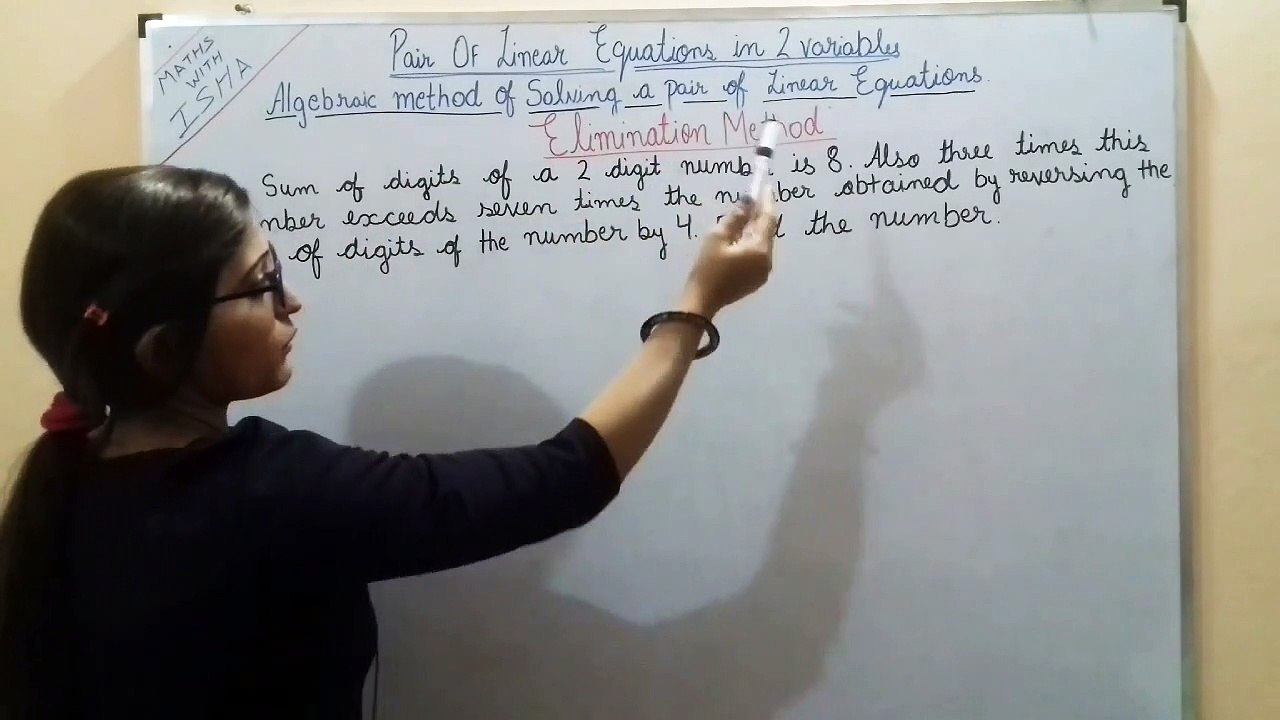 MATHS
WITH
ISHA
Pair Of Linear Equations in 2 variables
Algebraic method of Solving a pair of Linear Equations.
Elimination Method
Sum of digits of a 2 digit number is 8. Also three times this
exceeds seven times the number obtained by reversing the
of digits of the number by 4. the number.